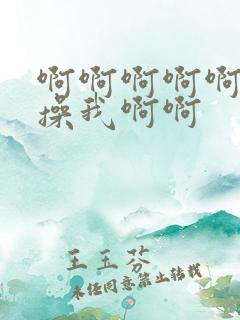 啊啊啊啊啊
操我啊啊
王玉芬
未经同意禁止转载